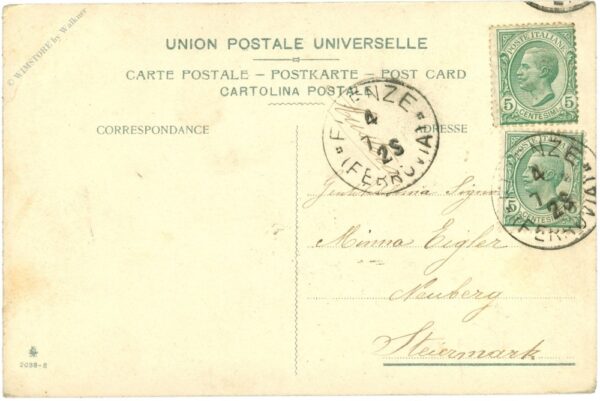 © WIMSTORE by Walkner
UNION POSTALE UNIVERSELLE
CARTE POSTALE – POSTKARTE – POST CARD
CARTOLINA POSTALE
CORRESPONDANCE
ADRESSE
POSTE ITALIANE
5 CENTESIMI 5
POSTE
5 CENTESIMI
FIRENZE
4
7
2S
(FERROVIA)
NZE
4
7
2S
(FERROVIA)
Signora
Minna Eigler
Neuberg
Steiermark
2098-8